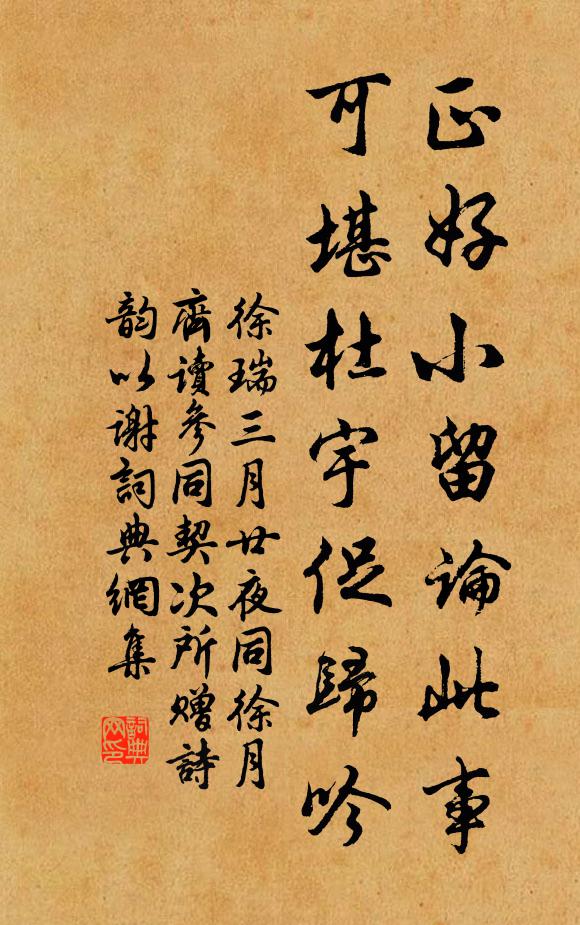 正好小留論此事
可堪杜宇促歸吟
徐瑞三月廿夜同徐月
齋讀參同契次所贈詩
韵以谢詞典網集
詞典
网印